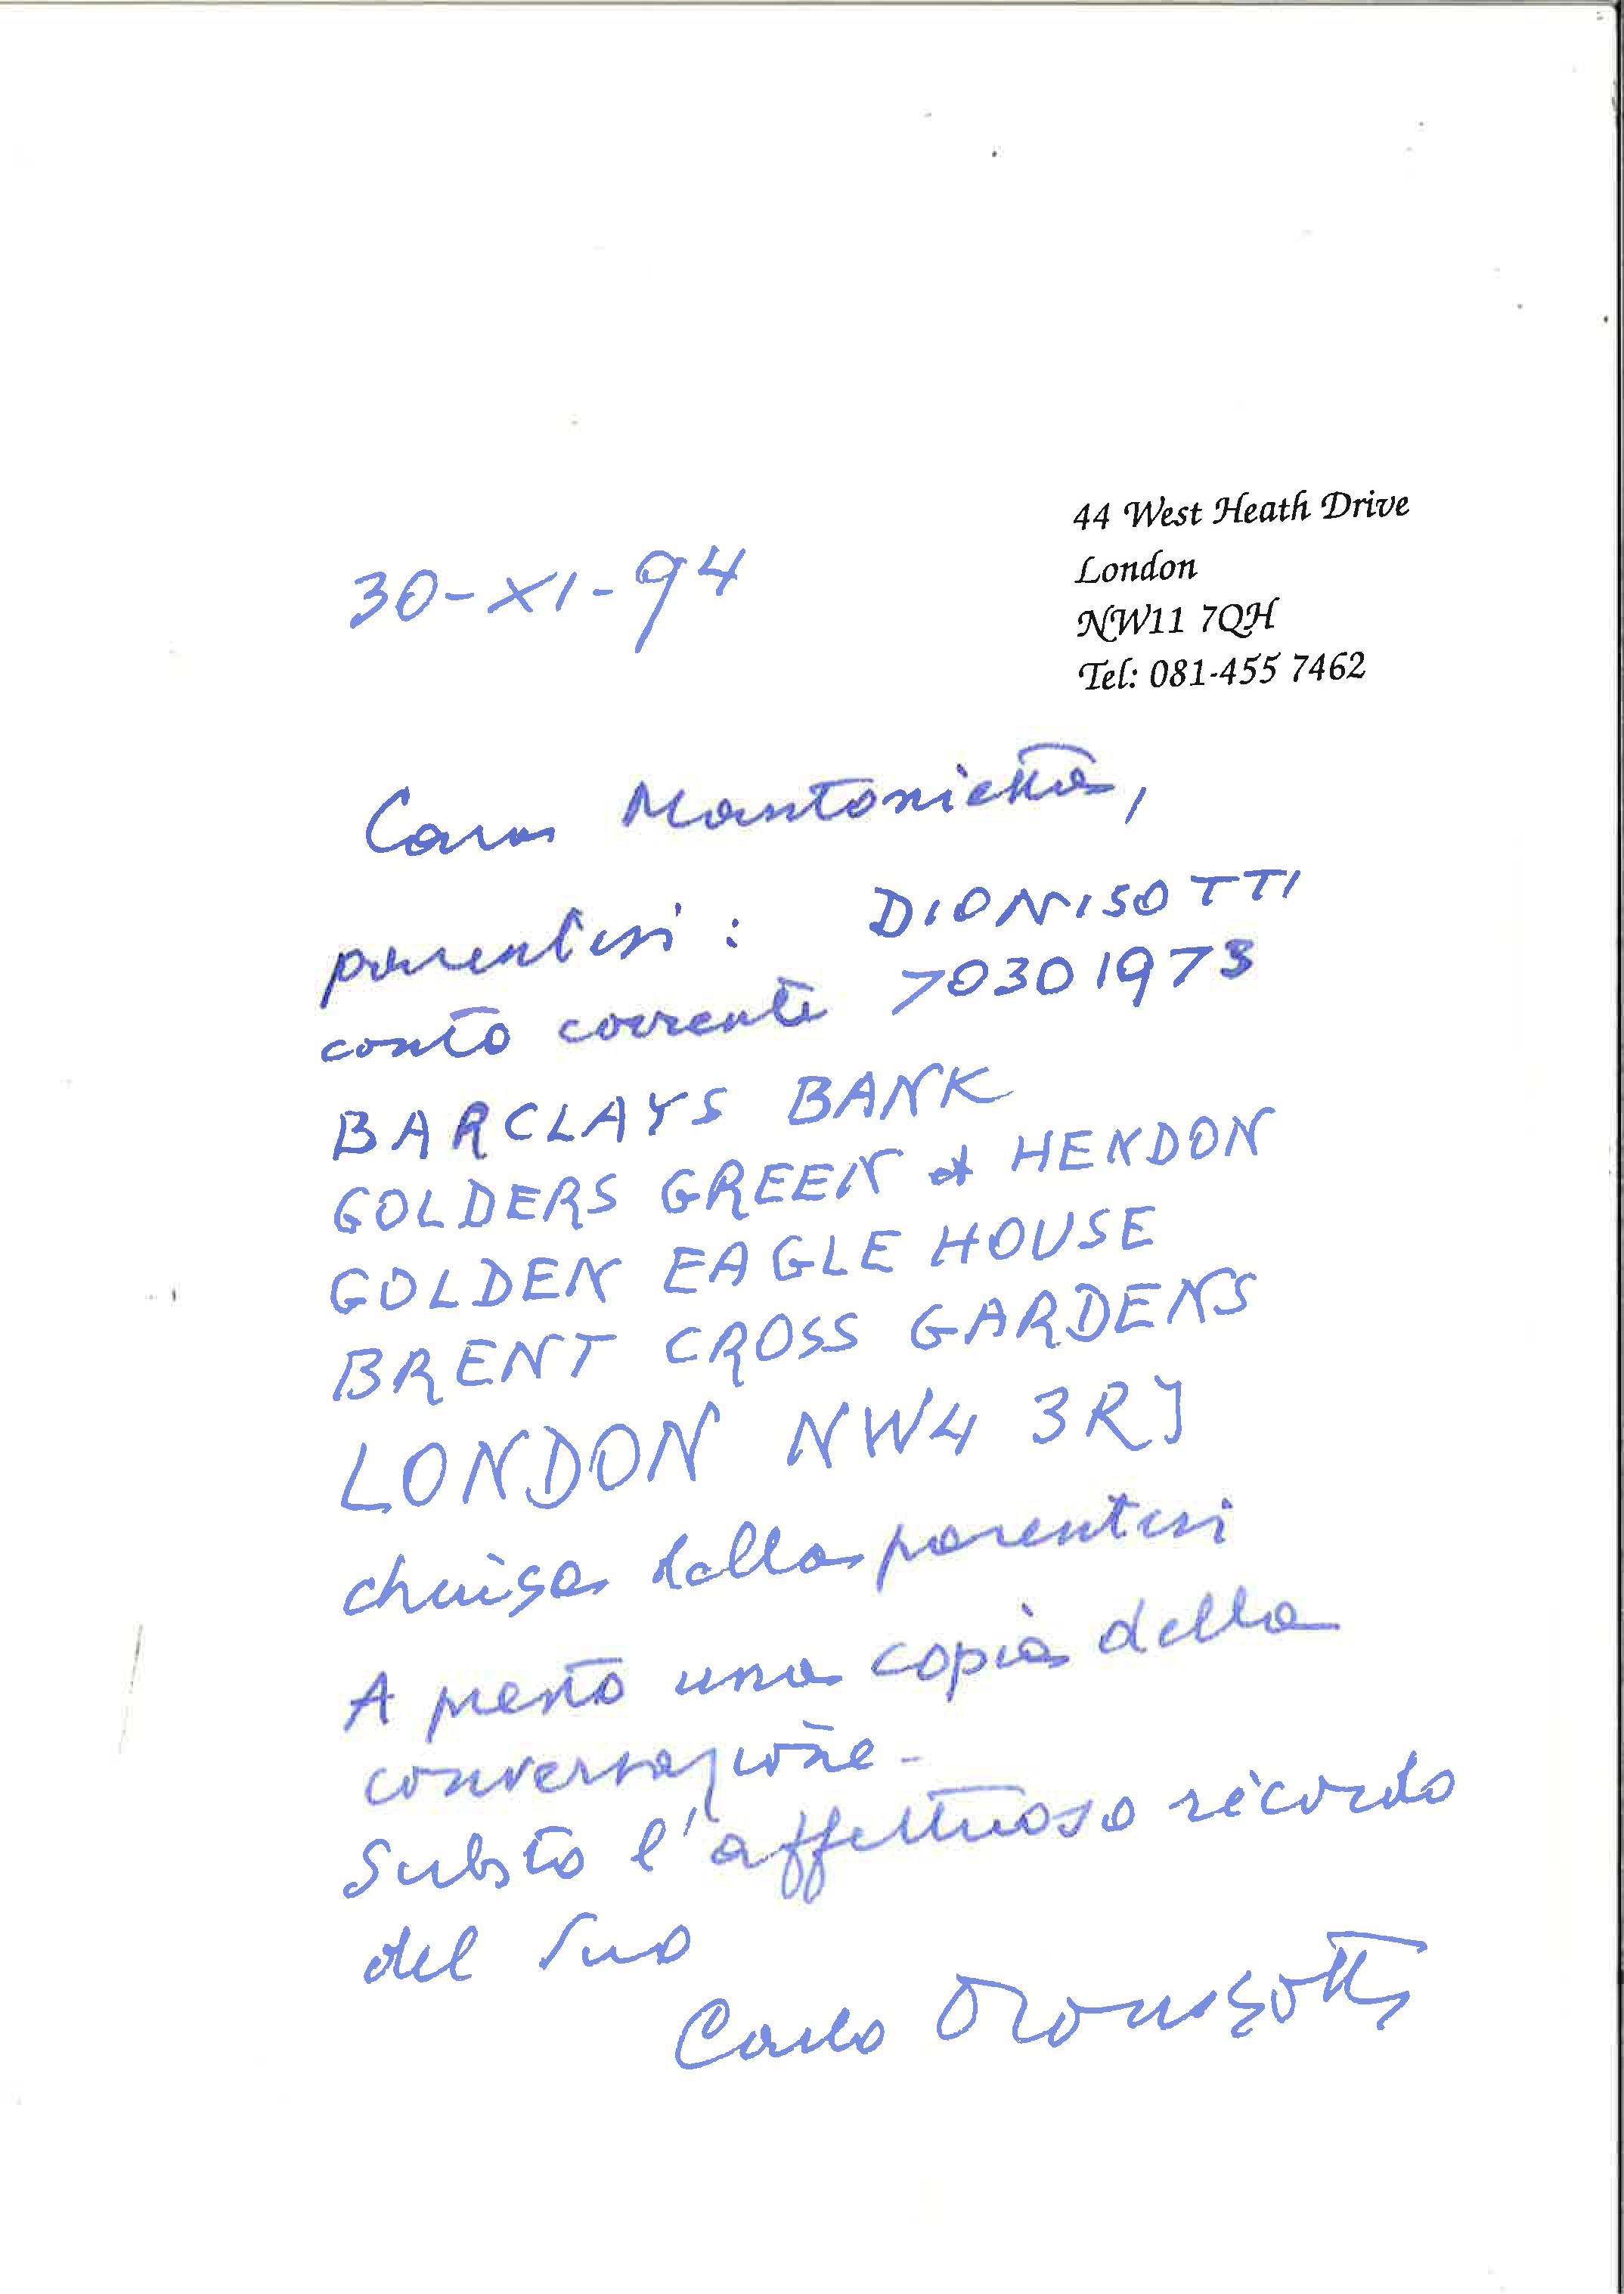 44 West Heath Drive
London
NW11 7QH
Tel: 081-455 7462
30-XI-94
Cara Mantonietta,
parentesi: DIONISOTTI
conto corrente 70301973
BARCLAYS BANK
GOLDERS GREEN & HENDON
GOLDEN EAGLE HOUSE
BRENT CROSS GARDENS
LONDON NW4 3RJ
chiusa della parentesi
A presto una copia della
conversazione-
Subito l'affettuoso ricordo
del Suo
Carlo Dionisotti